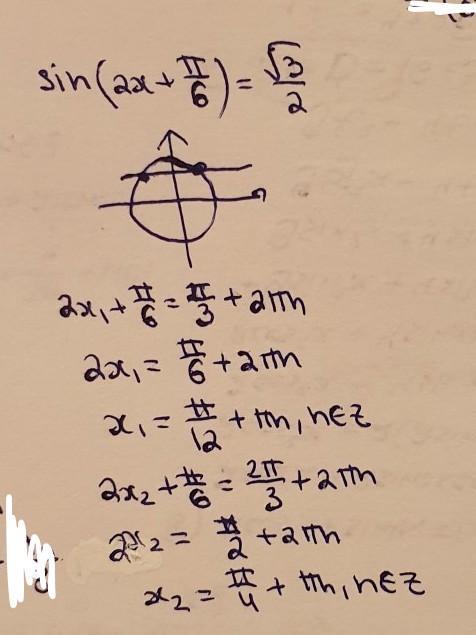 sin(2x + π/6) = √3/2
2x₁ + π/6 = π/3 + 2πn
2x₁ = π/6 + 2πn
x₁ = π/12 + πn, n∈Z
2x₂ + π/6 = 2π/3 + 2πn
2x₂ = π/2 + 2πn
x₂ = π/4 + πn, n∈Z